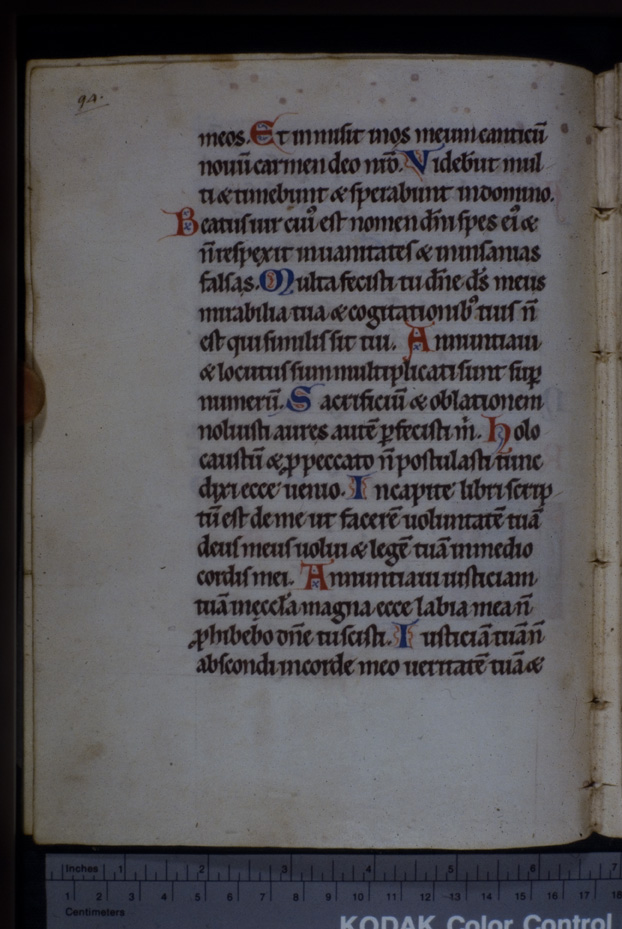 94.
meos. Et inmisit inos meum canticū
nouū carmen deo nrō. Videbūt mul
ti & timebunt & sperabunt indomino.
Beatus uir cuiꝰ est nomen dn̄i spes eiꝰ &
n̄ respexit inuanitates & ininsanias
falsas. Multa fecisti tu dn̄e ds̄ meus
mirabilia tua & cogitationibꝰ tuis n̄
est qui similis sit tiƀi. Annuntiaui
& locutus sum multiplicati sunt suꝑ
numerū. Sacrificiū & oblationem
noluisti aures autē ꝑfecisti m̍. Holo
caustū & ꝓ peccato n̄ postulasti tūnc
dixi ecce uenio. Incapite libri scrip
tū est de me ut facerē uoluntatē tuā
deus meus uolui & legē tuā inmedio
cordis mei. Annuntiaui iusticiam
tuā inecclā magna ecce labia mea n̄
ꝓhibebo dn̄e tu scisti. Iusticiā tuā n̄
abscondi incorde meo ueritatē tuā &
Inches 1 2 3 4 5 6 7
1 2 3 4 5 6 7 8 9 10 11 12 13 14 15 16 17 18
Centimeters
KODAK Color Control